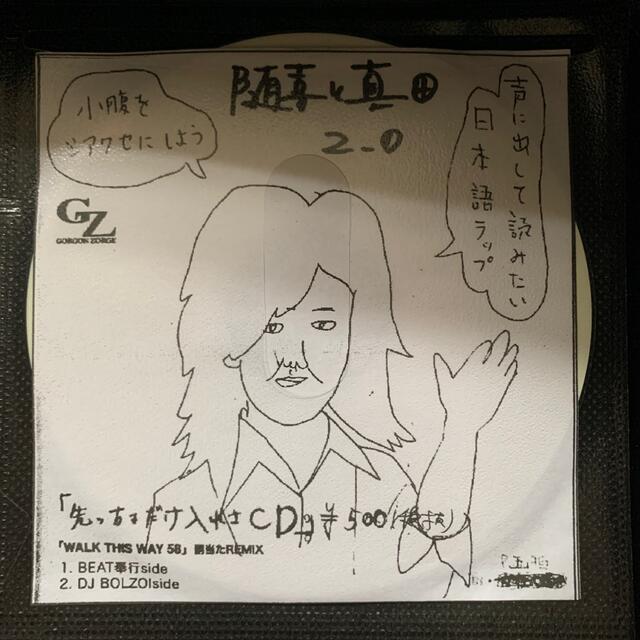 随喜と真田
2-0
小腹を
シアワセにしよう
声に出して読みたい
日本語ラップ
GZ
GORGON ZORGE
「先っちょだけ入れさせCD ¥500(税抜)」
「WALK THIS WAY 58」罰当たREMIX
1. BEAT奉行side
2. DJ BOLZOIside